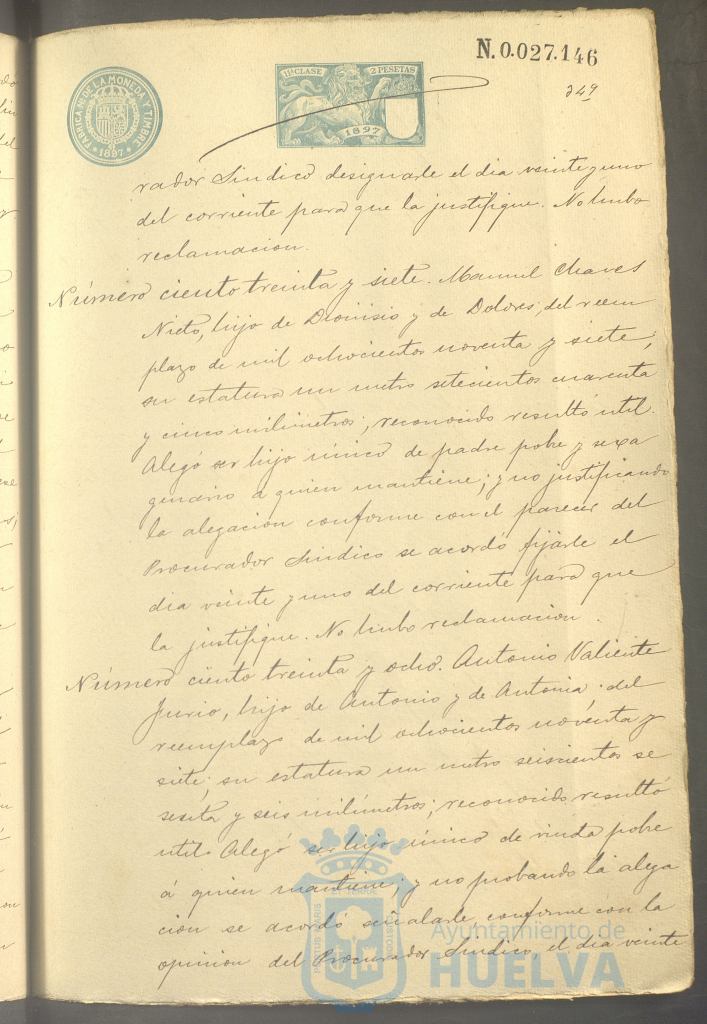 N. 0.027.146
FABRICA NL. DE LA MONEDA Y TIMBRE
* 1897 *
11ª CLASE 2 PESETAS
1897
249
rador Sindico designarle el dia veinte y uno
del corriente para que la justifique. No hubo
reclamacion.
Número ciento treinta y siete. Manuel Chaves
Nieto, hijo de Dionisio y de Dolores, del reem
plazo de mil ochocientos noventa y siete;
su estatura un metro setecientos cuarenta
y cinco milimetros; reconocido resultó util.
Alegó ser hijo único de padre pobre y sexa
genario a quien mantiene; y no justificando
la alegacion conforme con el parecer del
Procurador Sindico se acordó fijarle el
dia veinte y uno del corriente para que
la justifique. No hubo reclamacion.
Número ciento treinta y ocho. Antonio Valiente
Jurio, hijo de Antonio y de Antonia, del
reemplazo de mil ochocientos noventa y
siete; su estatura un metro seiscientos se
sesita y seis milimetros; reconocido resultó
util. Alegó ser hijo único de viuda pobre
á quien mantiene; y no probando la alega
cion se acordó señalarle, conforme con la
opinion del Procurador Sindico, el dia veinte
Ayuntamiento de
HUELVA